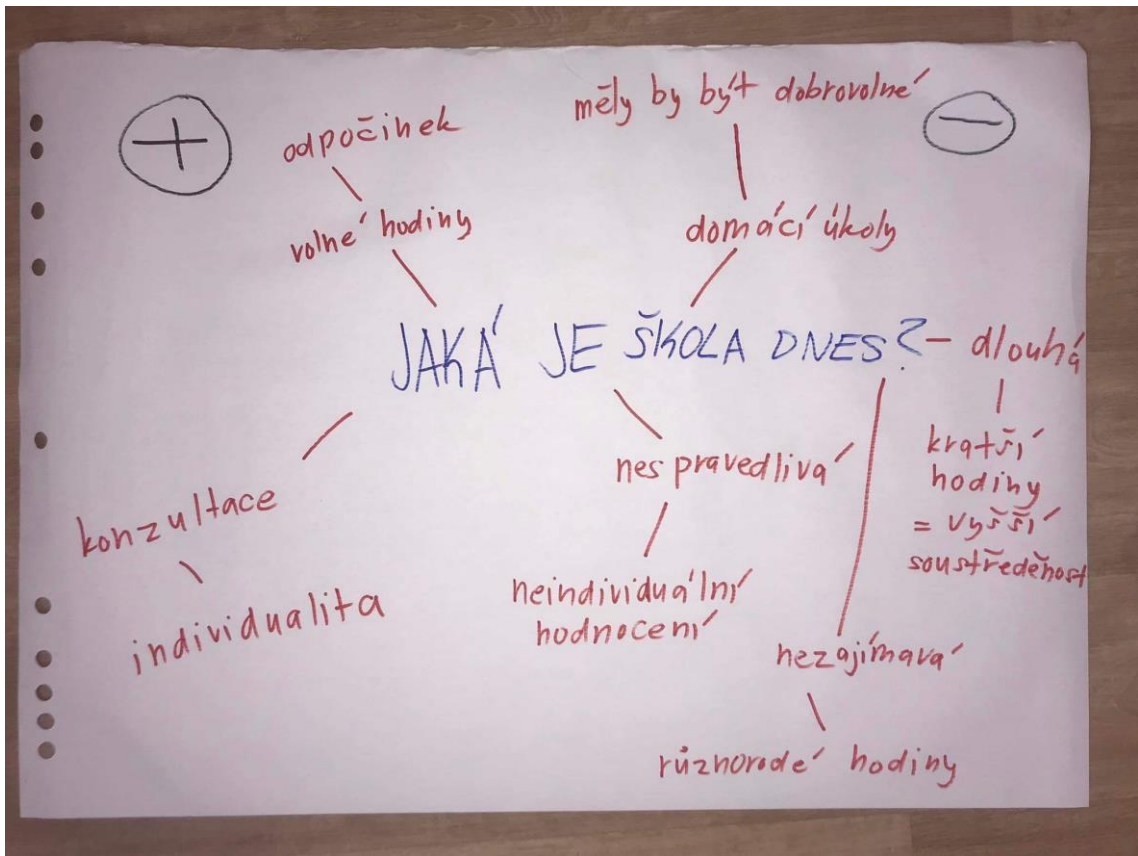 +
−
odpočinek
volné hodiny
měly by být dobrovolné
domácí úkoly
JAKÁ JE ŠKOLA DNES?
dlouhá
kratší
hodiny
= vyšší
soustředěnost
konzultace
individualita
nespravedlivá
neindividuální
hodnocení
nezajímavá
různorodé hodiny